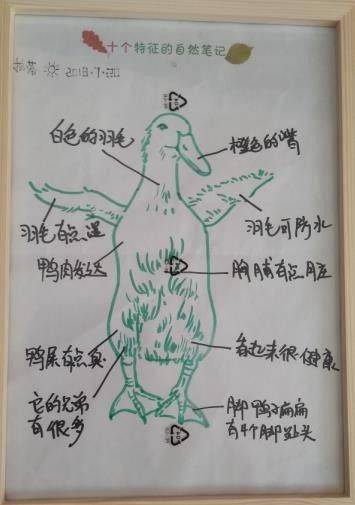 十个特征的自然笔记
2018.7.30
白色的羽毛
橙色的嘴
羽毛有点湿
羽毛可防水
鸭肉发达
胸脯有点脏
鸭屎有点臭
看起来很健康
它的兄弟
有很多
脚鸭子扁扁
有4个脚趾头